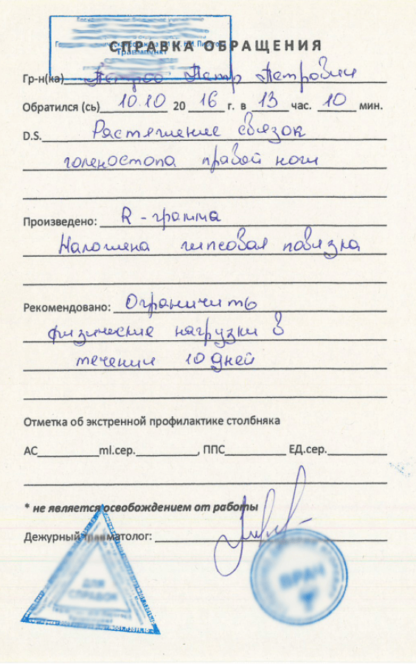 СПРАВКА ОБРАЩЕНИЯ
Гр-н(на) Петров Петр Петрович
Обратился (сь) 10.10 20 16 г. в 13 час. 10 мин.
D.S. Растяжение связок
голеностопа правой ноги
Произведено: R-грамма
Наложена гипсовая повязка
Рекомендовано: Ограничить
физические нагрузки в
течении 10 дней
Отметка об экстренной профилактике столбняка
АС ml.сер. , ППС ЕД.сер.
* не является освобождением от работы
Дежурный травматолог:
ДЛЯ
СПРАВОК
ВРАЧ